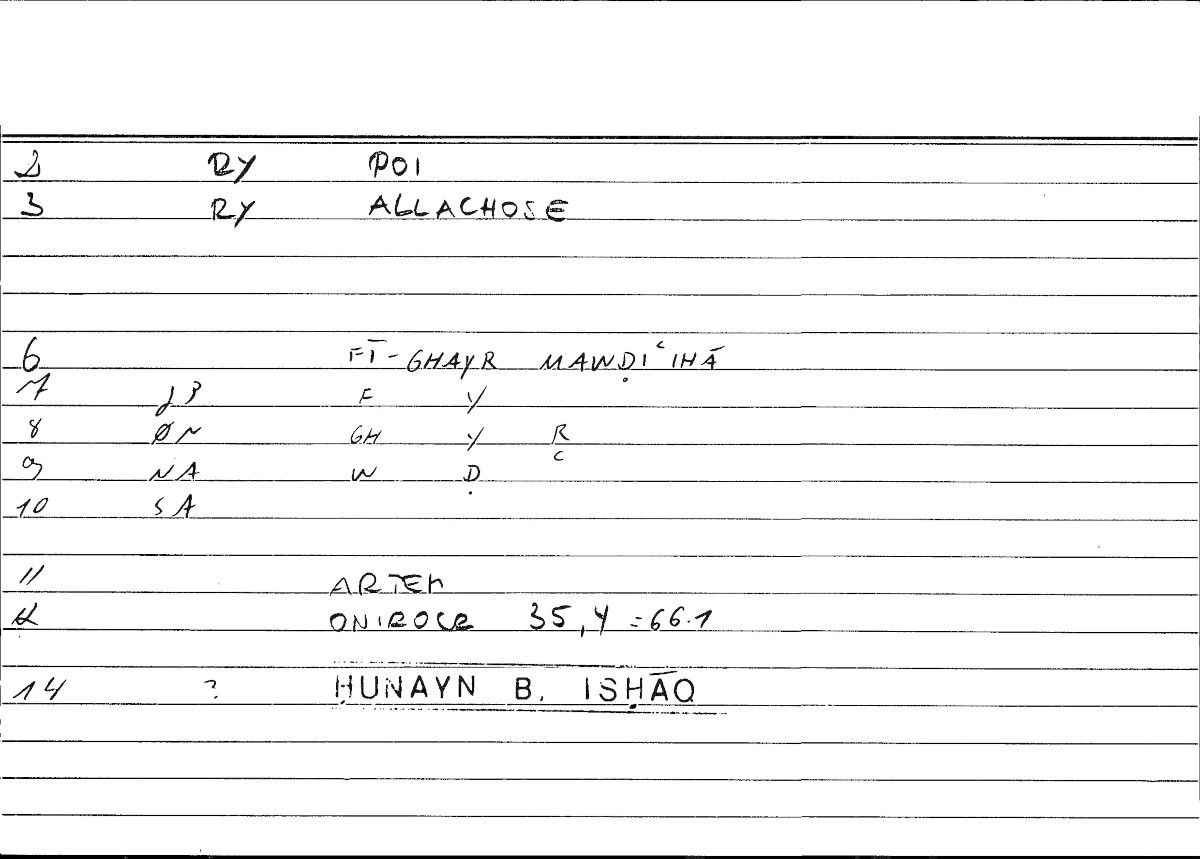 2 RY POI
3 RY ALLACHOSE
6 FĪ-GHAYR MAWḌIʿIHĀ
7 J3 F Y
8 ØN GH Y R
9 NA W Ḍ ʿ
10 SA
11 ARTEM
12 ONIROCR 35,4=66.1
14 ? ḤUNAYN B. ISḤĀQ